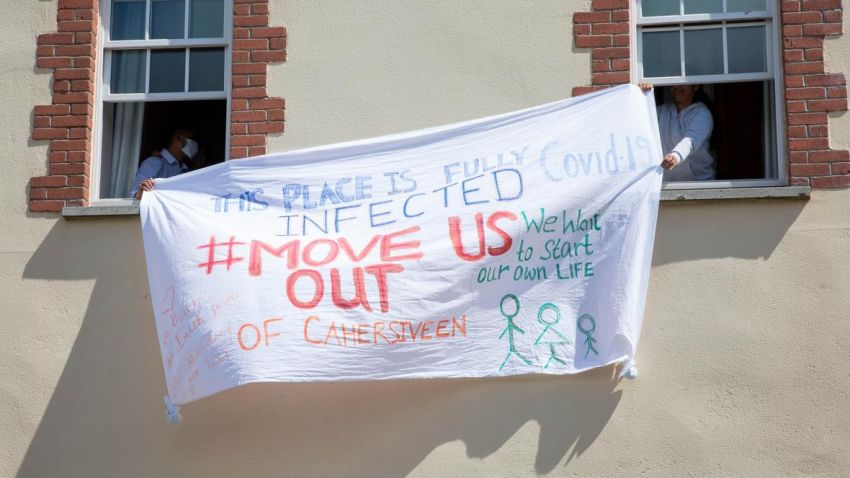 THIS PLACE IS FULLY
INFECTED
Covid-19
#MOVE US
OUT
OF CAHERSIVEEN
We Want
to Start
our own LIFE